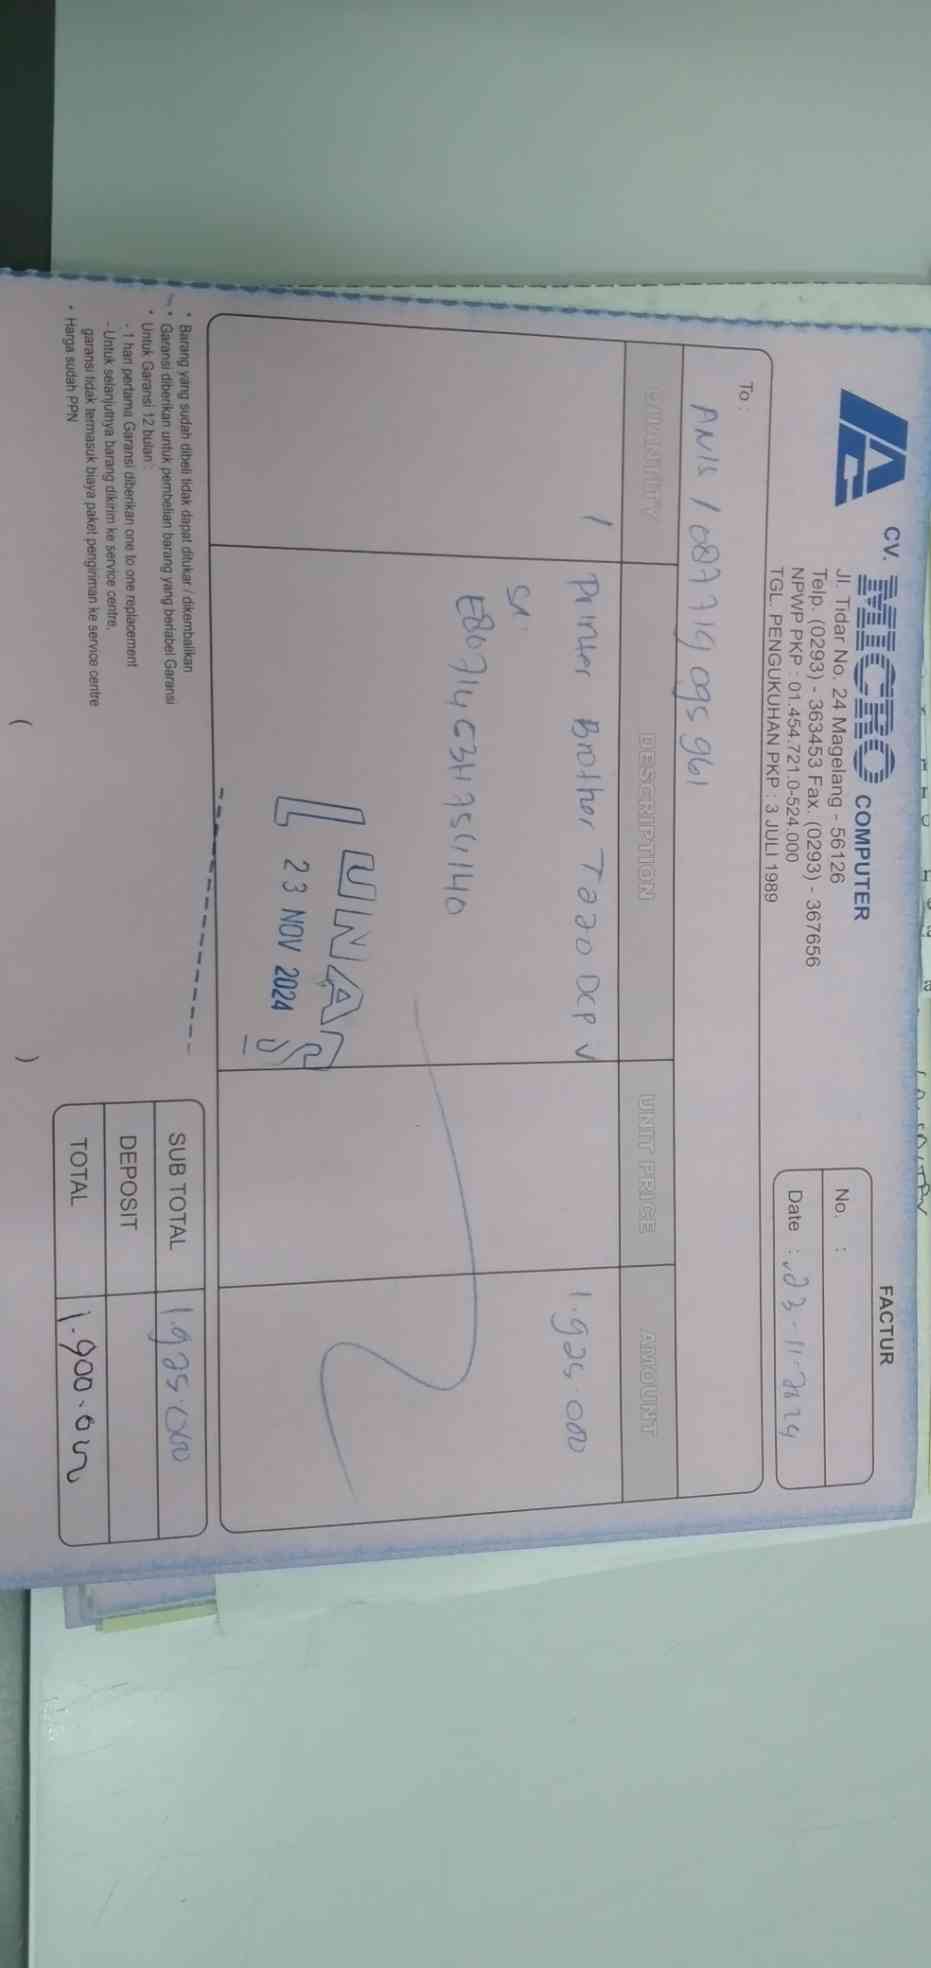 FACTUR
CV. MICRO COMPUTER
Jl. Tidar No. 24 Magelang - 56126
Telp. (0293) - 363453 Fax. (0293) - 367656
NPWP PKP : 01.454.721.0-524.000
TGL. PENGUKUHAN PKP : 3 JULI 1989
No. :
Date : 23-11-2024
To :
ANIS / 087719095961
QUANTITY DESCRIPTION UNIT PRICE AMOUNT
1 Printer Brother T220 DCP 1.925.000
SN:
LUNAS
23 NOV 2024
SUB TOTAL 1.925.000
DEPOSIT
TOTAL 1.900.000
• Barang yang sudah dibeli tidak dapat ditukar / dikembalikan
• Garansi diberikan untuk pembelian barang yang berlabel Garansi
• Untuk Garansi 12 bulan :
- 1 hari pertama Garansi diberikan one to one replacement
- Untuk selanjutnya barang dikirim ke service centre,
garansi tidak termasuk biaya paket pengiriman ke service centre
• Harga sudah PPN
( )